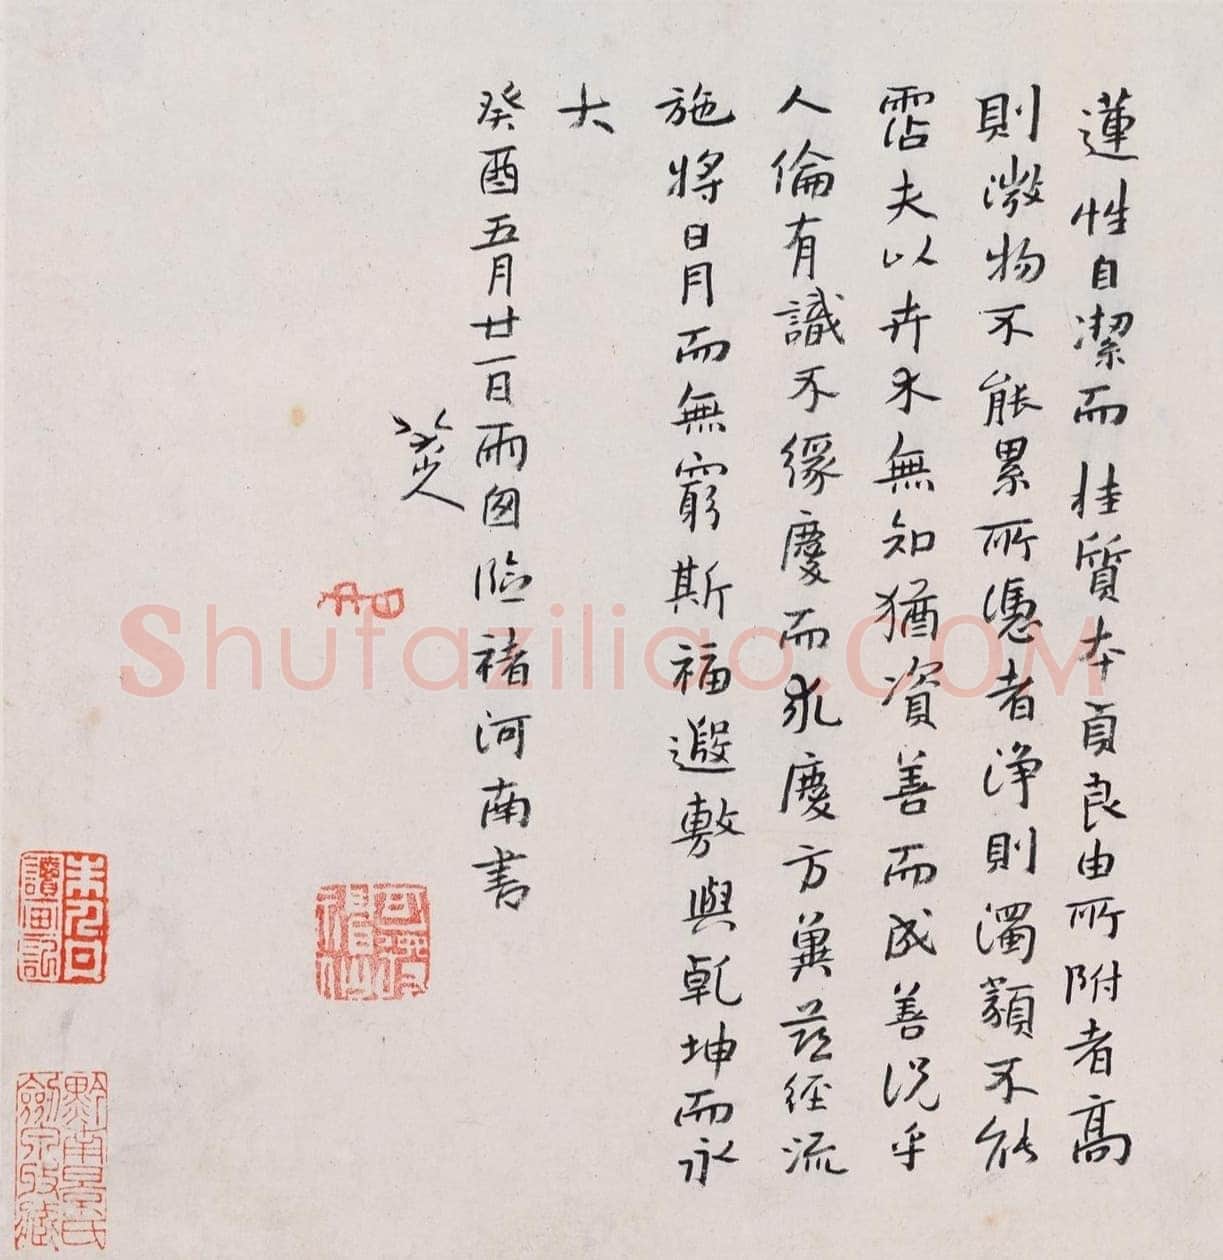 蓮性自潔而桂質本貞良由所附者高
則微物不能累所憑者淨則濁類不能
霑夫以卉木無知猶資善而成善況乎
人倫有識不緣慶而求慶方冀茲經流
施將日月而無窮斯福遐敷與乾坤而永
大
癸酉五月廿一日雨囪臨褚河南書
八大山人
可得神仙
讀畫記
黔南景氏
劍泉攷藏
Shufaziliao.COM